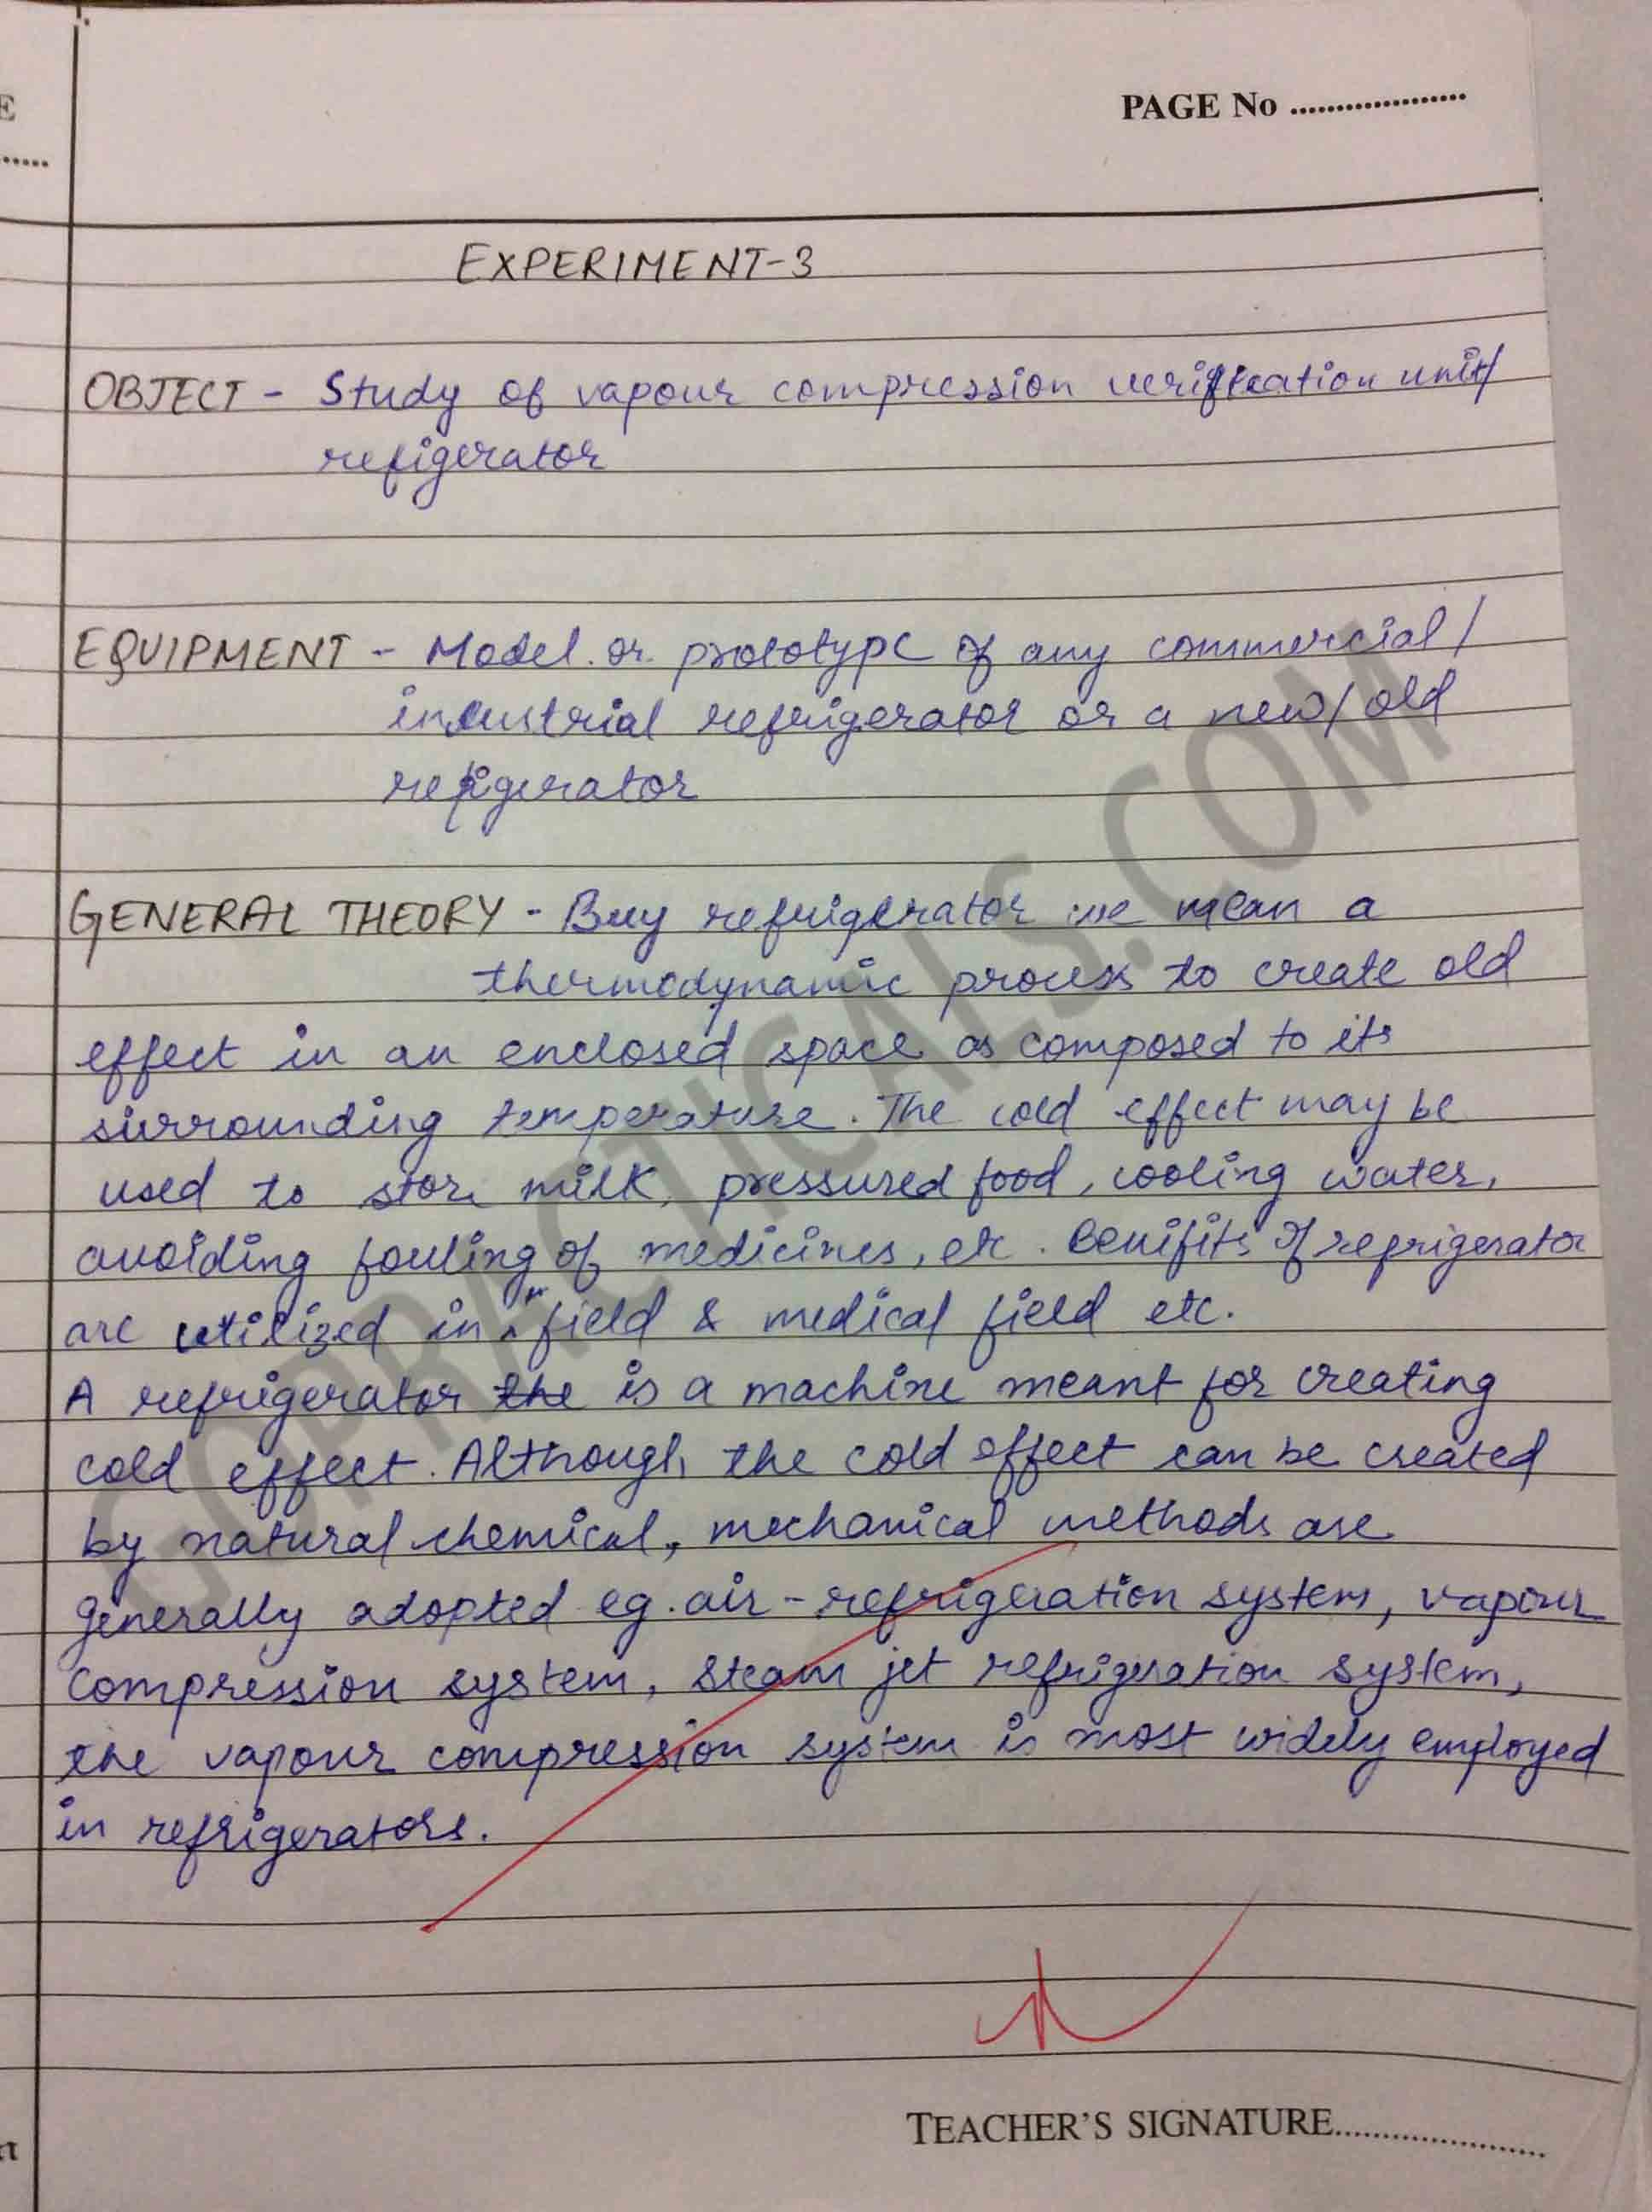 E
PAGE No ....................
.....
EXPERIMENT-3
OBJECT - Study of vapour compression verification unit/
refigerator
EQUIPMENT - Model or prototype of any commercial/
industrial refrigerator or a new/old
refigerator
GENERAL THEORY - Buy refrigerator we mean a
thermodynamic process to create old
effect in an enclosed space as composed to its
surrounding temperature. The cold effect may be
used to store milk, pressured food, cooling water,
avoiding fouling of medicines, etc. Benifits of refrigerator
are utilized in field & medical field etc.
A refrigerator the is a machine meant for creating
cold effect. Although the cold effect can be created
by natural chemical, mechanical methods are
generally adopted eg. air-refrigeration system, vapour
compression system, steam jet refrigeration system,
the vapour compression system is most widely employed
in refrigerators.
COPRACTICALS.COM
TEACHER'S SIGNATURE......................